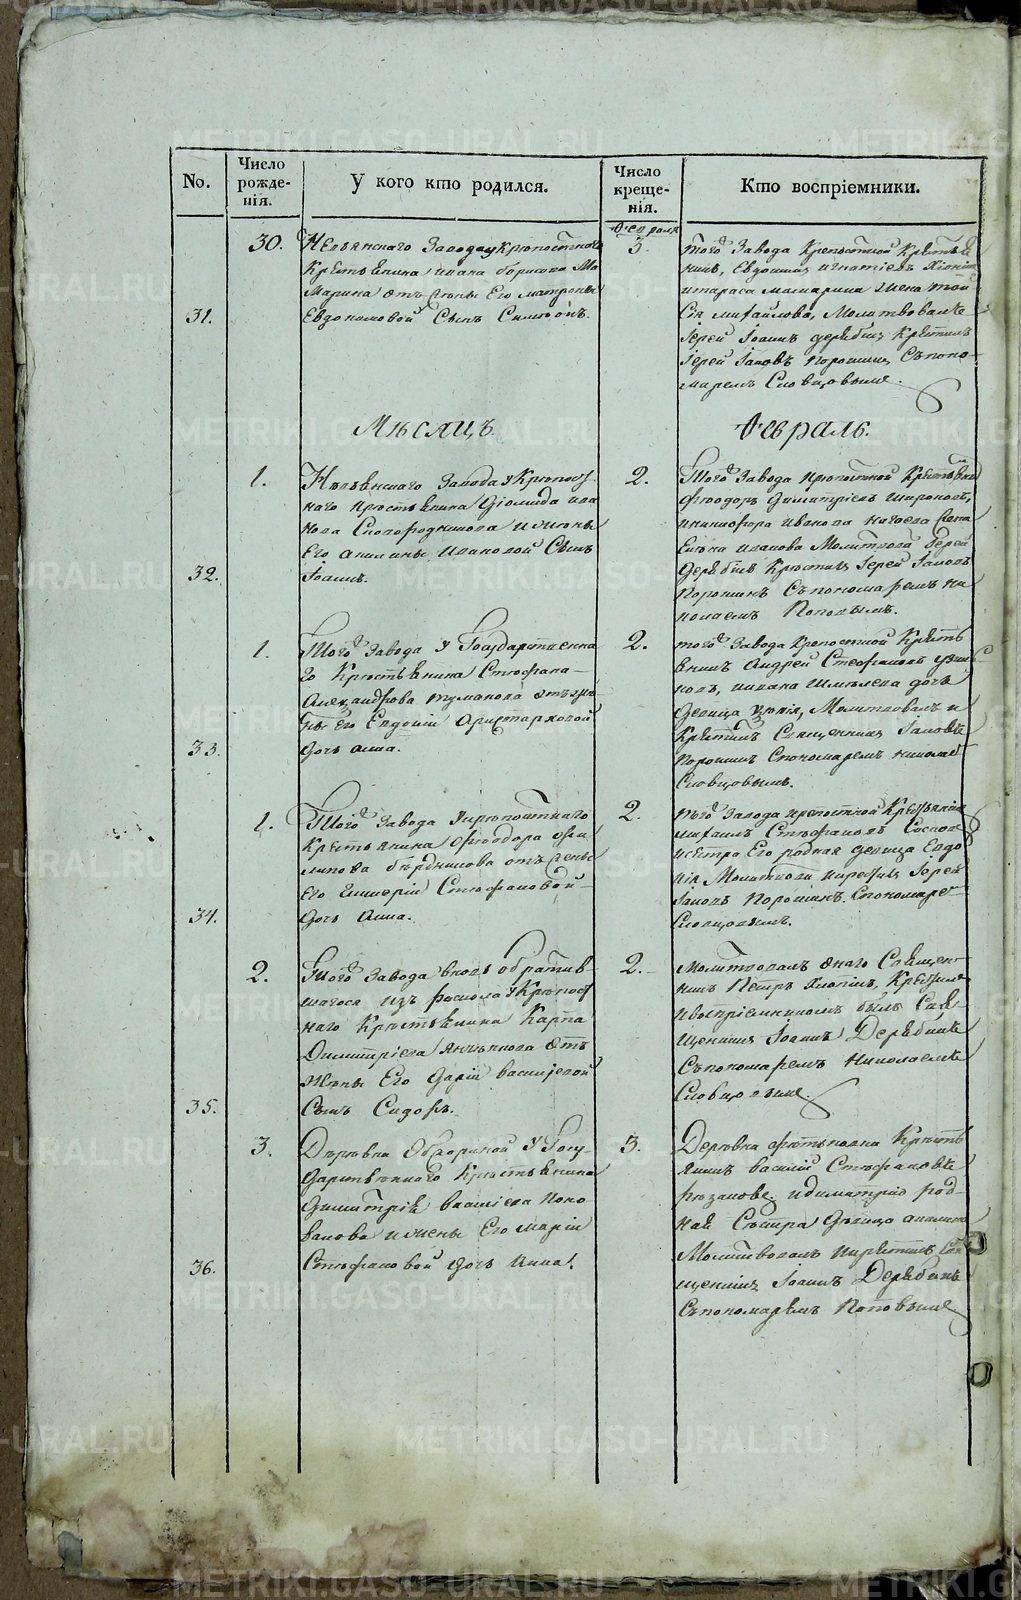 No.
Число рожденія.
У кого кто родился.
Число крещенія.
Кто воспріемники.
31.
30.
Невьянскаго Завода у Крѣпостнаго
Крестьянина Ивана Борисова Ма
Марина отъ жены Его Матроны
Евдокимовой Сынъ Симеонъ.
Февраля
3.
того Завода Крепостной Крестья
нинъ, Евдокимъ Игнатіевъ
и Тараса Мамарина жена
Михайлова, Молитвовалъ
Іерей Іоаннъ Дерябинъ Крестилъ
Іерей Іаковъ Порошинъ Съ Поно-
маремъ Словцовымъ.
Мѣсяцъ
Февраль.
32.
1.
Невьянскаго Завода у Крѣпост
наго Крестьянина Діомида Ива
нова Сковородникова и жены
Его Акилины Ивановой Сынъ
Іоаннъ.
2.
Того Завода Крѣпостной Крестьянинъ
Феодоръ Димитріевъ Широковъ,
и Никифора Иванова жена
Елена Иванова Молитвовалъ Іерей
Дерябинъ Крестилъ Іерей Іаковъ
Порошинъ Съ пономаремъ Ни
колаемъ Поповымъ.
33.
1.
Того Завода у Государственна
го Крестьянина Стефана
Александрова Туманова отъ же
ны Его Евдокіи Аристарховой
Дочь Анна.
2.
того Завода Крепостной Кресть
янинъ Андрей Стефановъ
Ивана Шмелева дочь
Девица, Молитвовалъ и
Крестилъ Священникъ Іаковъ
Порошинъ Спономаремъ Николае
Словцовымъ.
34.
1.
Того Завода у крѣпостнаго
Крестьянина Феодора Фи
липова Бердникова отъ жены
Его Гликеріи Стефановой
Дочь Анна.
2.
того Завода крепостной Крестьянинъ
Михаилъ Стефановъ
и сестра Его родная девица Евдо
кія Молитвовалъ и крестилъ Іерей
Іаковъ Порошинъ. Спономаре
Словцовымъ.
35.
2.
Того Завода вновь обратив-
шагося изъ раскола у Крѣпост
наго Крестьянина Карпа
Димитріева отъ
жены Его Даріи Васильевой
Сынъ Сидоръ.
2.
Молитвовалъ Онаго Священ-
никъ Петръ Хлопинъ, Крестилъ
и воспріемникомъ былъ Свя
щенникъ Іоаннъ Дерябинъ
Съ пономаремъ Николаемъ
Словцовымъ.
36.
3.
Деревни Обжориной у Госу-
дарственнаго Крестьянина
Димитрія Василіева Коно
валова и жены Его Маріи
Стефановой дочь Анна.
3.
Деревни Фетьковки Кресть
янинъ Василій Стефановъ
и Димитрія род-
ная Сестра Дѣвица Акилина
Молитвовалъ и Крестилъ Свя
щенникъ Іоаннъ Дерябинъ
Съ пономаремъ Поповымъ.